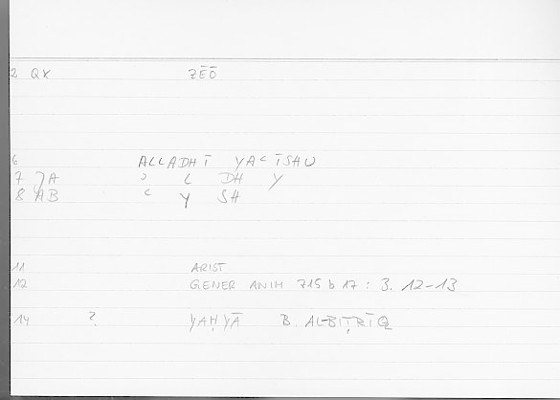 2 QK ZĒŌ
6 ALLADHĪ YAʿĪSHU
7 ʾA ʾ L DH Y
8 AB ʿ Y SH
11 ARIST
12 GENER ANIM 715 b 17 : 3. 12-13
14 ? YAḤYĀ B. AL-BIṬRĪQ